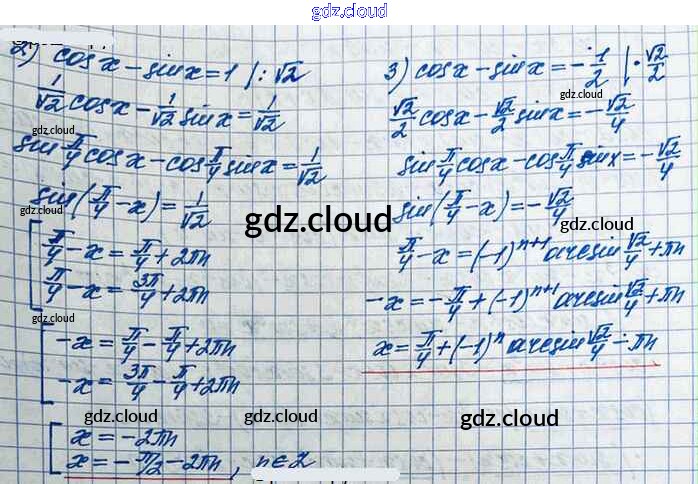 gdz.cloud
2) cos x − sin x = 1 | : √2
1/√2 cos x − 1/√2 sin x = 1/√2
gdz.cloud
sin π/4 cos x − cos π/4 sin x = 1/√2
gdz.cloud
sin(π/4 − x) = 1/√2
gdz.cloud
[ π/4 − x = π/4 + 2πn
π/4 − x = 3π/4 + 2πn
gdz.cloud
[ −x = π/4 − π/4 + 2πn
−x = 3π/4 − π/4 + 2πn
gdz.cloud
[ x = −2πn
x = −π/2 − 2πn, n∈Z
gdz.cloud
3) cos x − sin x = −1/2 | · √2/2
gdz.cloud
√2/2 cos x − √2/2 sin x = −√2/4
gdz.cloud
sin π/4 cos x − cos π/4 sin x = −√2/4
sin(π/4 − x) = −√2/4
gdz.cloud
π/4 − x = (−1)ⁿ⁺¹ arcsin √2/4 + πn
gdz.cloud
−x = −π/4 + (−1)ⁿ⁺¹ arcsin √2/4 + πn
gdz.cloud
x = π/4 + (−1)ⁿ arcsin √2/4 − πn
gdz.cloud
gdz.cloud
gdz.cloud